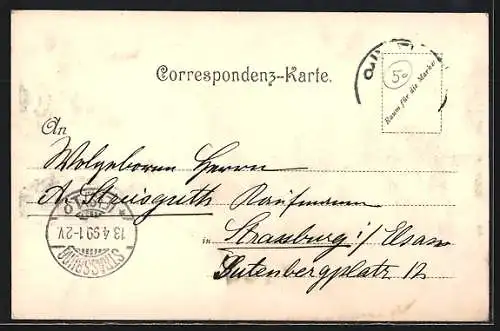 Correspondenz-Karte.
50
Raum für die Marke
An
Wolgeboren Herrn
A. Stuisguth Kaufmann
in Strassburg i/ Elsass
Gutenbergplatz 12
STRASSBURG
13 4 99 1-2 V.